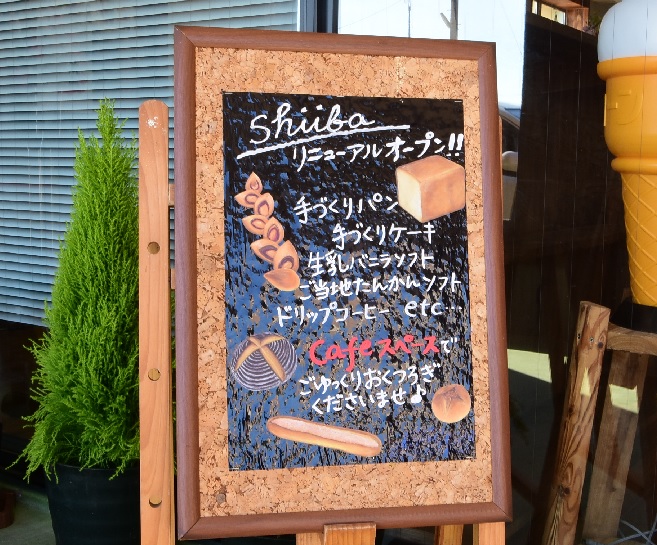 Shiiba
リニューアルオープン!!
手づくりパン
手づくりケーキ
生乳バニラソフト
ご当地たんかんソフト
ドリップコーヒー etc…
Cafeスペースで
ごゆっくりおくつろぎ
くださいませ♪